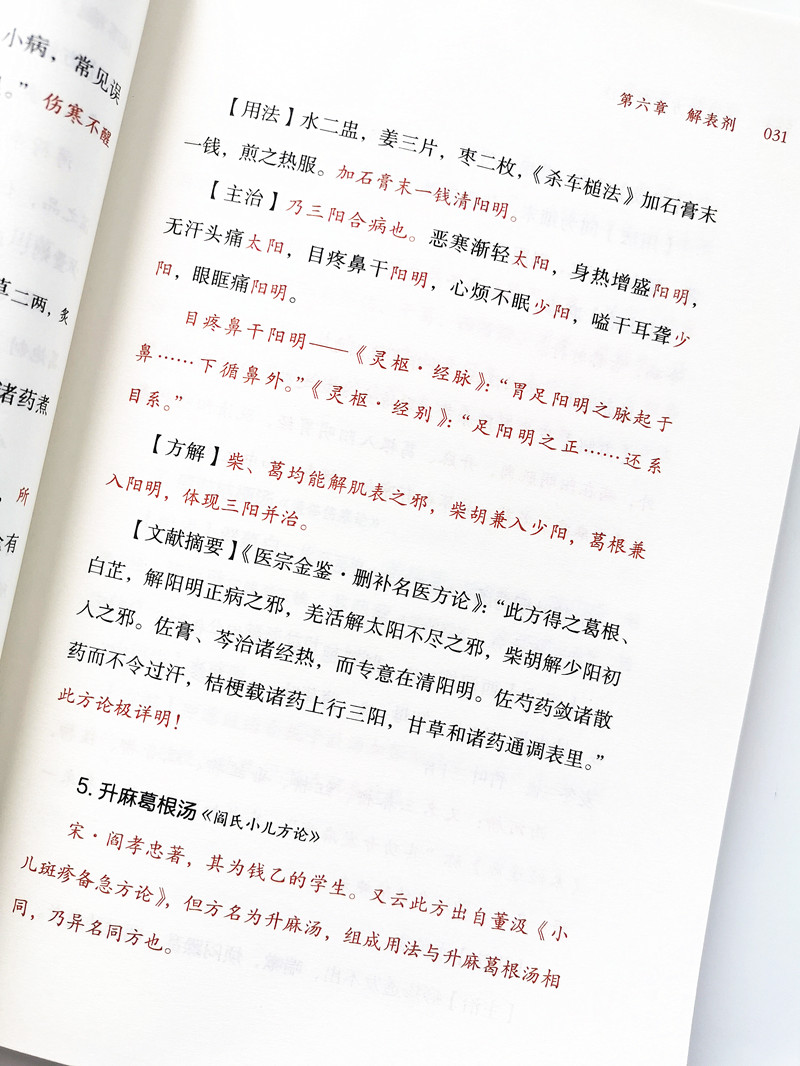 小病，常见误
。”伤寒不醒
草二两，炙
诸药煮
，所
有
第六章 解表剂 031
【用法】水二盅，姜三片，枣二枚，《杀车槌法》加石膏末
一钱，煎之热服。加石膏末一钱清阳明。
【主治】乃三阳合病也。恶寒渐轻太阳，身热增盛阳明，
无汗头痛太阳，目疼鼻干阳明，心烦不眠少阳，嗌干耳聋少
阳，眼眶痛阳明。
目疼鼻干阳明——《灵枢·经脉》：“胃足阳明之脉起于
鼻……下循鼻外。”《灵枢·经别》：“足阳明之正……还系
目系。”
【方解】柴、葛均能解肌表之邪，柴胡兼入少阳，葛根兼
入阳明，体现三阳并治。
【文献摘要】《医宗金鉴·删补名医方论》：“此方得之葛根、
白芷，解阳明正病之邪，羌活解太阳不尽之邪，柴胡解少阳初
入之邪。佐膏、芩治诸经热，而专意在清阳明。佐芍药敛诸散
药而不令过汗，桔梗载诸药上行三阳，甘草和诸药通调表里。”
此方论极详明！
5. 升麻葛根汤《阎氏小儿方论》
宋·阎孝忠著，其为钱乙的学生。又云此方出自董汲《小
儿斑疹备急方论》，但方名为升麻汤，组成用法与升麻葛根汤相
同，乃异名同方也。